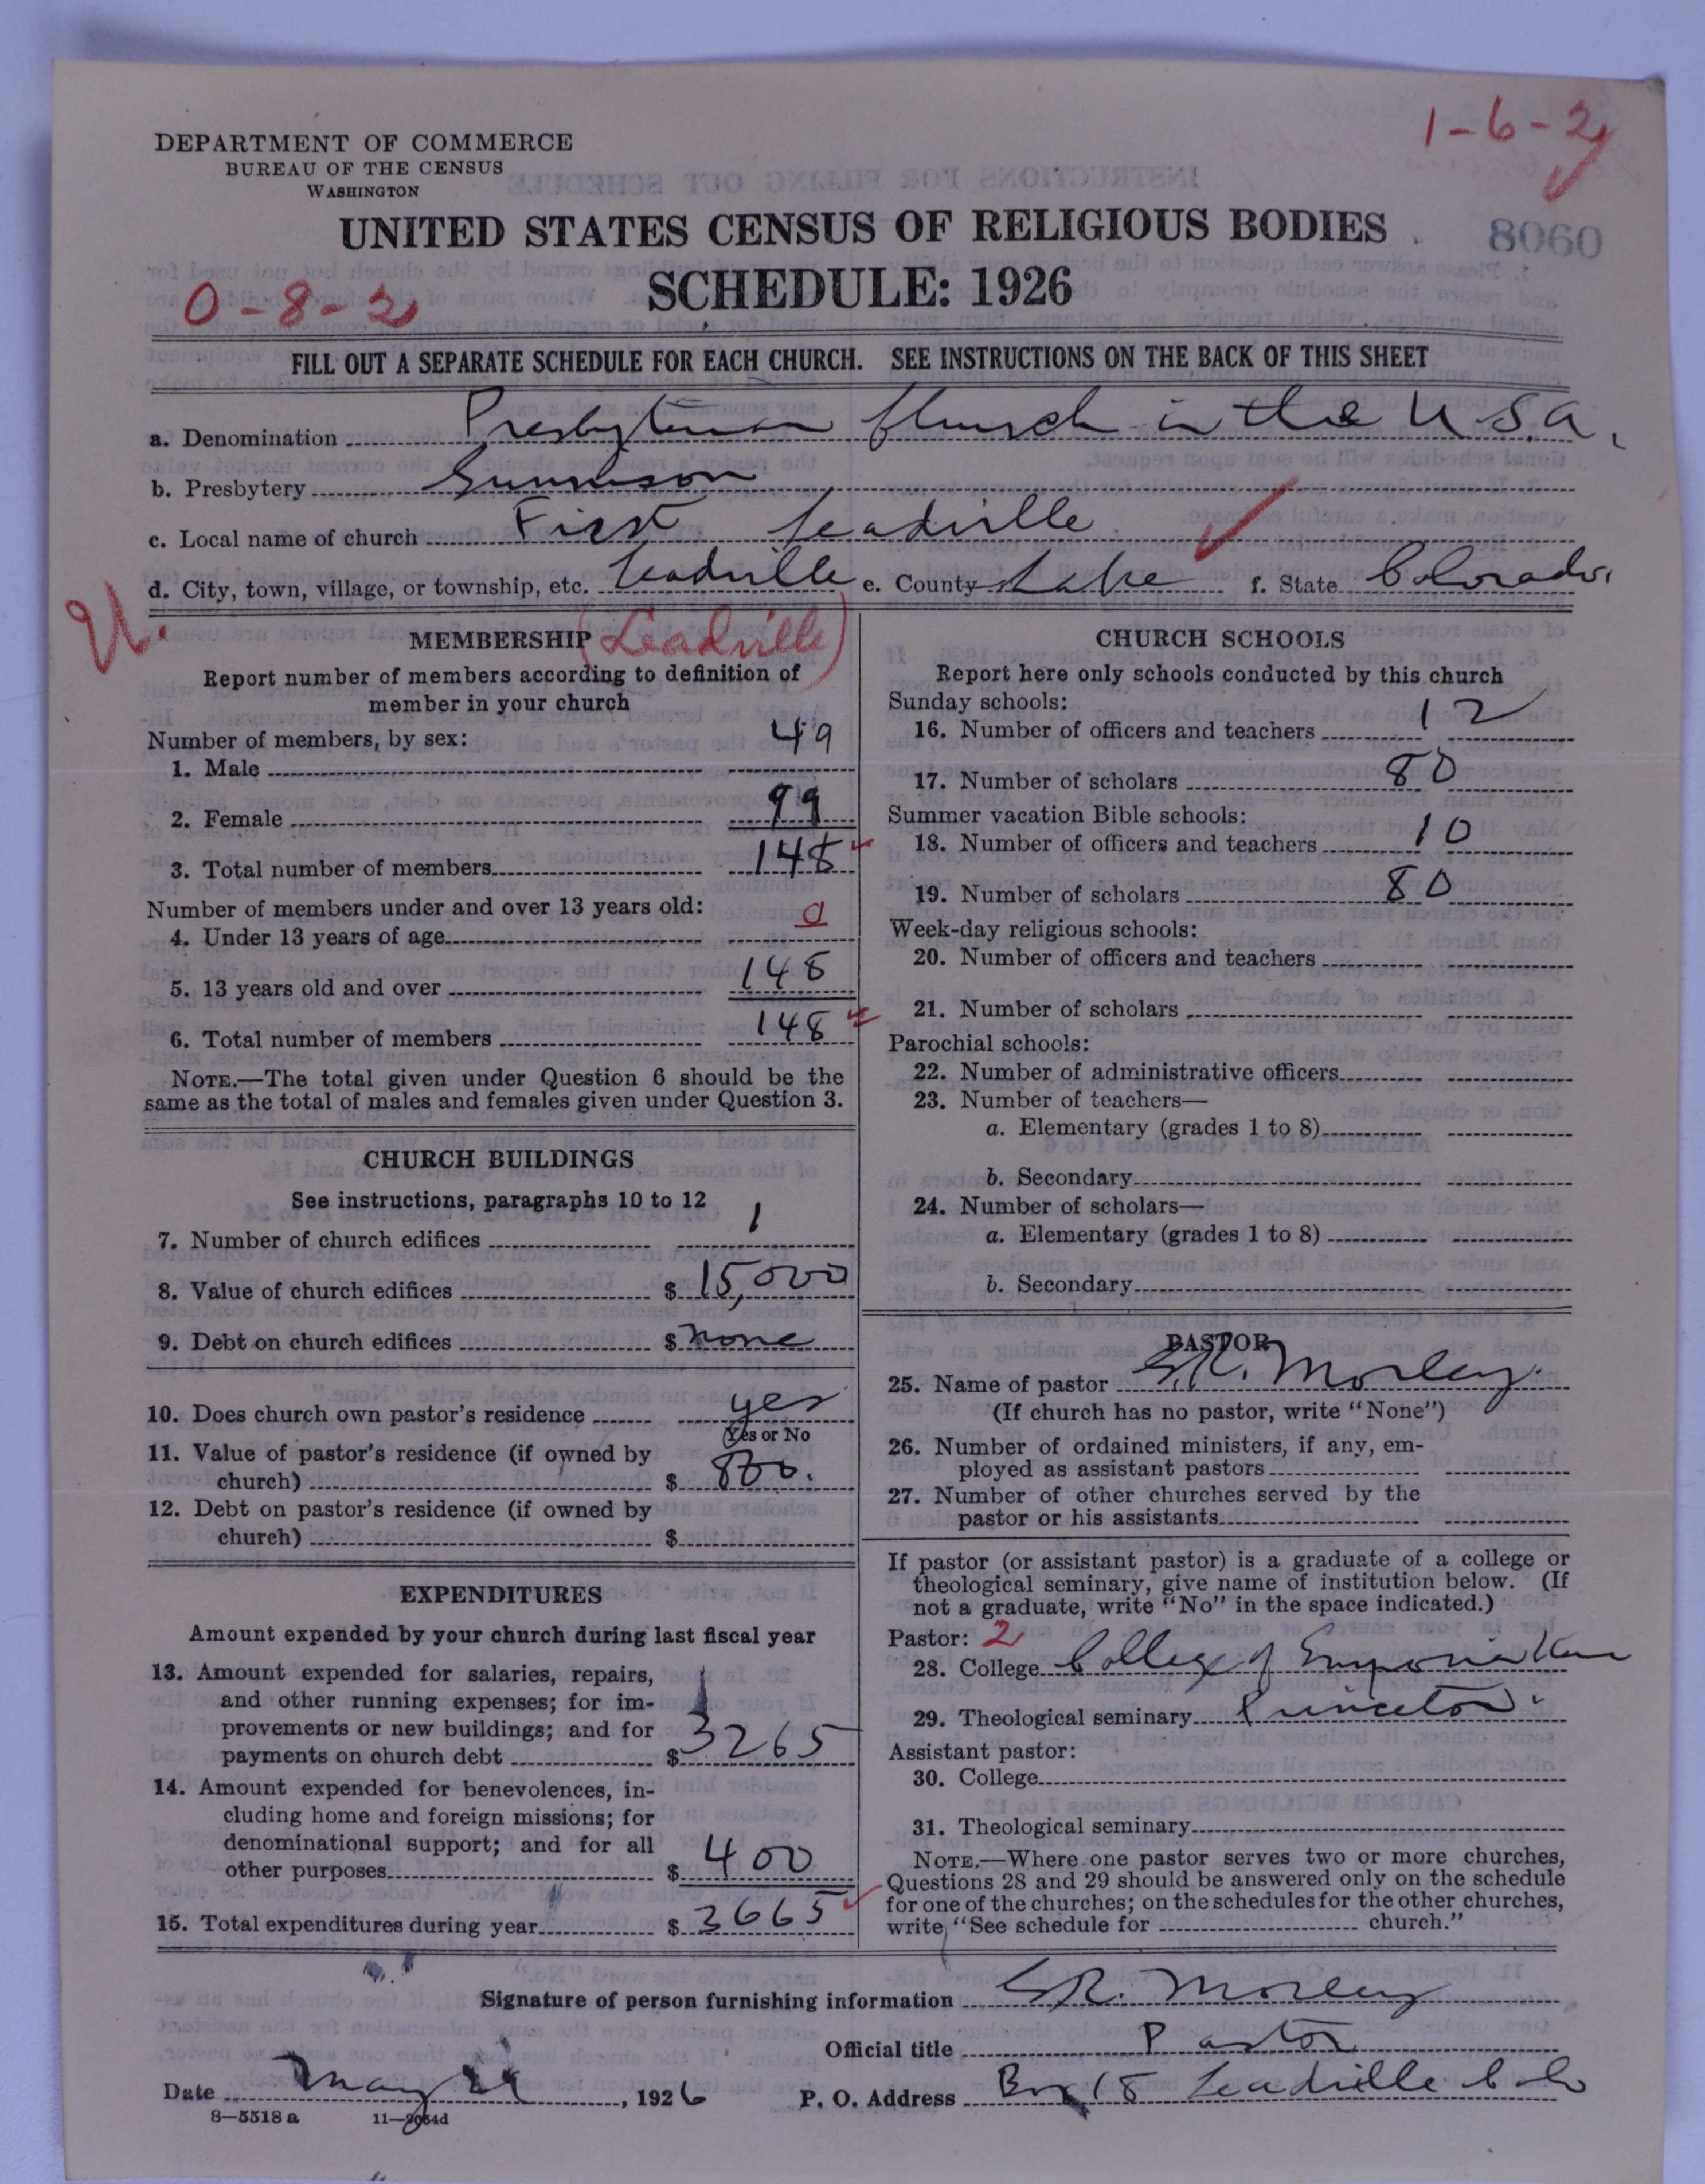 1-6-2
DEPARTMENT OF COMMERCE
BUREAU OF THE CENSUS
WASHINGTON
UNITED STATES CENSUS OF RELIGIOUS BODIES
8060
SCHEDULE: 1926
0-8-2
FILL OUT A SEPARATE SCHEDULE FOR EACH CHURCH. SEE INSTRUCTIONS ON THE BACK OF THIS SHEET
a. Denomination Presbyterian Church in the U.S.A.
b. Presbytery Gunnison
c. Local name of church First Leadville
d. City, town, village, or township, etc. Leadville e. County Lake f. State Colorado.
U.
MEMBERSHIP (Leadville)
Report number of members according to definition of
member in your church
Number of members, by sex:
1. Male 49
2. Female 99
3. Total number of members 148
Number of members under and over 13 years old:
4. Under 13 years of age 0
5. 13 years old and over 148
6. Total number of members 148
NOTE.—The total given under Question 6 should be the
same as the total of males and females given under Question 3.
CHURCH BUILDINGS
See instructions, paragraphs 10 to 12
7. Number of church edifices 1
8. Value of church edifices $ 15,000
9. Debt on church edifices $ none
10. Does church own pastor's residence yes
Yes or No
11. Value of pastor's residence (if owned by
church) $ 800.
12. Debt on pastor's residence (if owned by
church) $
EXPENDITURES
Amount expended by your church during last fiscal year
13. Amount expended for salaries, repairs,
and other running expenses; for im-
provements or new buildings; and for
payments on church debt $ 3265
14. Amount expended for benevolences, in-
cluding home and foreign missions; for
denominational support; and for all
other purposes $ 400
15. Total expenditures during year $ 3665
CHURCH SCHOOLS
Report here only schools conducted by this church
Sunday schools:
16. Number of officers and teachers 12
17. Number of scholars 80
Summer vacation Bible schools:
18. Number of officers and teachers 10
19. Number of scholars 80
Week-day religious schools:
20. Number of officers and teachers
21. Number of scholars
Parochial schools:
22. Number of administrative officers
23. Number of teachers—
a. Elementary (grades 1 to 8)
b. Secondary
24. Number of scholars—
a. Elementary (grades 1 to 8)
b. Secondary
PASTOR
25. Name of pastor S.R. Morley.
(If church has no pastor, write "None")
26. Number of ordained ministers, if any, em-
ployed as assistant pastors
27. Number of other churches served by the
pastor or his assistants
If pastor (or assistant pastor) is a graduate of a college or
theological seminary, give name of institution below. (If
not a graduate, write "No" in the space indicated.)
Pastor: 2
28. College College of Emporia Kan
29. Theological seminary Princeton.
Assistant pastor:
30. College
31. Theological seminary
NOTE.—Where one pastor serves two or more churches,
Questions 28 and 29 should be answered only on the schedule
for one of the churches; on the schedules for the other churches,
write "See schedule for church."
Signature of person furnishing information S.R. Morley
Official title Pastor
Date May , 1926 P. O. Address Box 18 Leadville Colo
8—5518 a 11—9054d